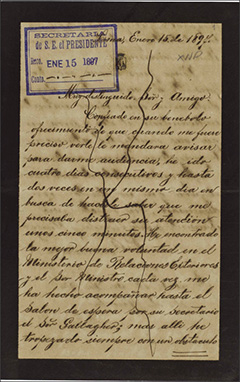 SECRETARIA
de S. E. el PRESIDENTE
ENE 15 1897
Lima, Enero 15 de 1897.
Muy distinguido Sor. y Amigo.
Confiado en su
ofrecimiento de que cuando me fuera
preciso verlo le mandara avisar
para darme audiencia, he ido
cuatro dias consecutivos y hasta
dos veces en un mismo dia en
busca de hacerle saber que me
precisaba distraer su atencion
unos cinco minutos. He encontrado
la mejor buena voluntad en el
Ministerio de Relaciones Exteriores
y el Sor. Ministro cada vez me
ha hecho acompañar hasta el
Salon de espera por su secretario
el Sor. Gallagher; mas alli he
tropezado siempre con un obstaculo